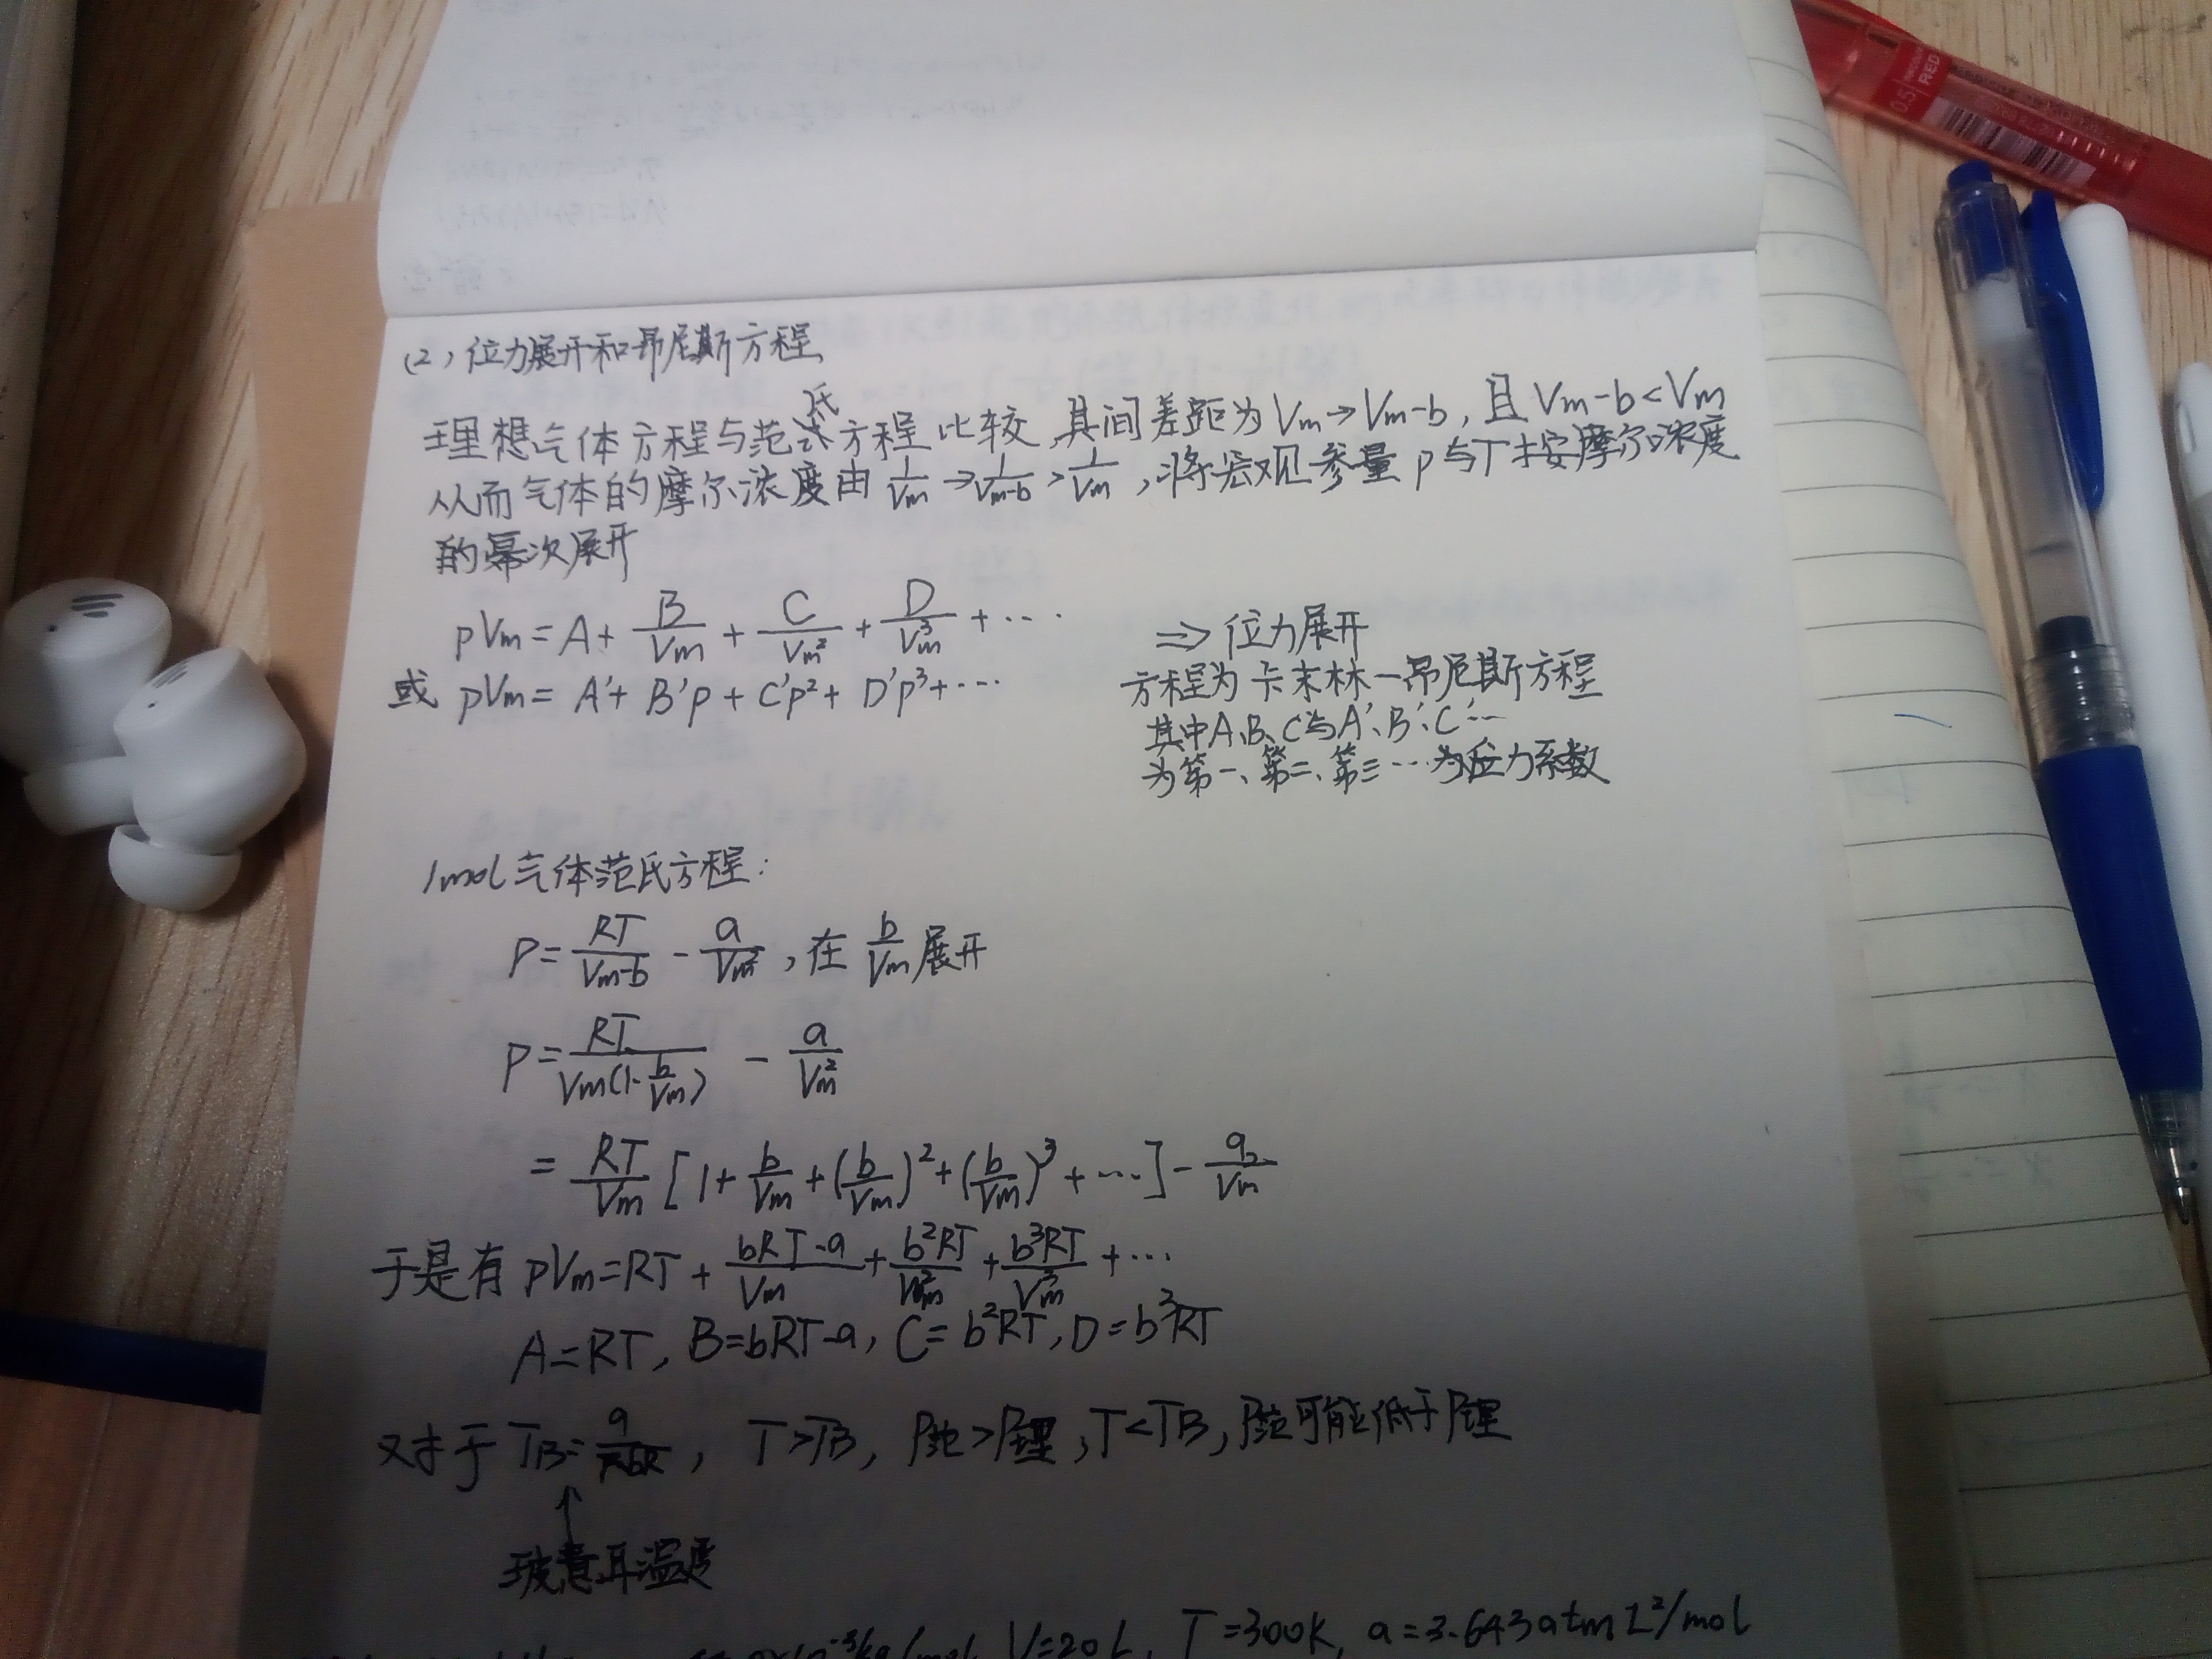 (2) 位力展开和昂尼斯方程
理想气体方程与范氏方程比较,其间差距为 Vm→Vm-b, 且 Vm-b<Vm
从而气体的摩尔浓度由 1/Vm → 1/(Vm-b) > 1/Vm ,将宏观参量 p 与 T 按摩尔浓度
的幂次展开
pVm = A + B/Vm + C/Vm² + D/Vm³ + ···
或 pVm = A' + B'p + C'p² + D'p³ + ···
⇒ 位力展开
方程为卡末林-昂尼斯方程
其中A、B、C与A'、B'、C'···
为第一、第二、第三···为位力系数
1mol 气体范氏方程:
P = RT/(Vm-b) - a/Vm² , 在 b/Vm 展开
P = RT/(Vm(1-b/Vm)) - a/Vm²
= RT/Vm [1 + b/Vm + (b/Vm)² + (b/Vm)³ + ···] - a/Vm²
于是有 pVm = RT + (bRT-a)/Vm + b²RT/Vm² + b³RT/Vm³ + ···
A=RT, B=bRT-a, C=b²RT, D=b³RT
对于 TB = a/bR , T>TB, P范>P理, T<TB, P范可能低于P理
↑
玻意耳温度
V=20L, T=300K, a=3.643atmL²/mol
0.5
RED